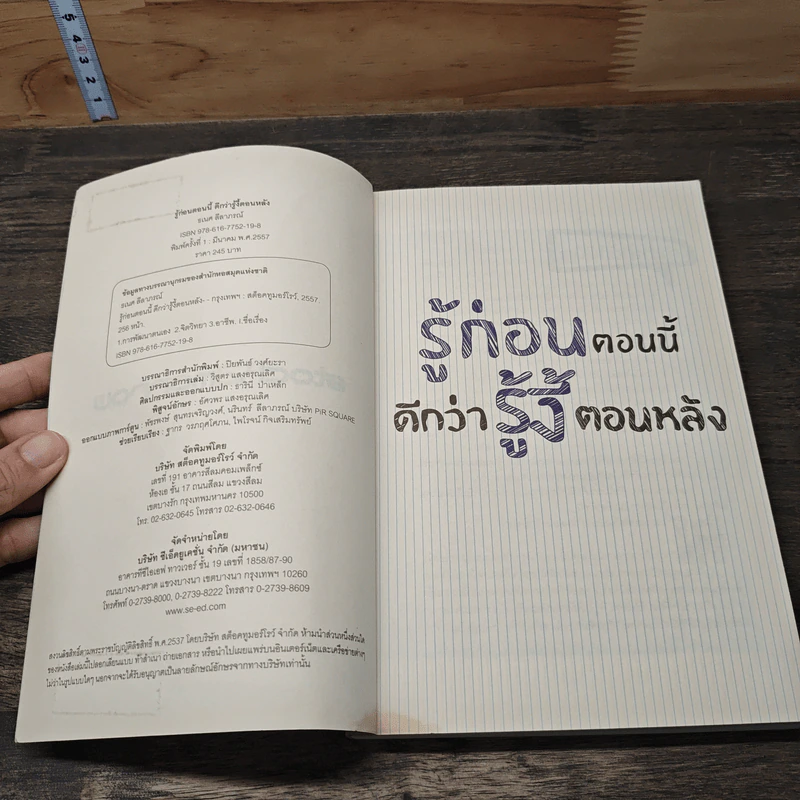 รู้ก่อนตอนนี้ ดีกว่ารู้งี้ตอนหลัง
ธเนศ ลีลาภรณ์
ISBN 978-616-7752-19-8
พิมพ์ครั้งที่ 1 : มีนาคม พ.ศ.2557
ราคา 245 บาท
ข้อมูลทางบรรณานุกรมของสำนักหอสมุดแห่งชาติ
ธเนศ ลีลาภรณ์
รู้ก่อนตอนนี้ ดีกว่ารู้งี้ตอนหลัง- - กรุงเทพฯ : สต็อคทูมอร์โรว์, 2557.
256 หน้า.
1.การพัฒนาตนเอง 2.จิตวิทยา 3.อาชีพ. I.ชื่อเรื่อง
ISBN 978-616-7752-19-8
บรรณาธิการสำนักพิมพ์ : ปิยพันธ์ วงศ์ยะรา
บรรณาธิการเล่ม : วิสูตร แสงอรุณเลิศ
ศิลปกรรมและออกแบบปก : ธารินี ป่าเหล็ก
พิสูจน์อักษร : อัศวพร แสงอรุณเลิศ
ออกแบบภาพการ์ตูน : พัชรพงษ์ สุนทรเจริญวงศ์, นรินทร์ ลีลาภรณ์ บริษัท PiR SQUARE
ช่วยเรียบเรียง : ฐากร วรกฤตโศภน, ไพโรจน์ กิจเสริมทรัพย์
จัดพิมพ์โดย
บริษัท สต็อคทูมอร์โรว์ จำกัด
เลขที่ 191 อาคารสีลมคอมเพล็กซ์
ห้องเอ ชั้น 17 ถนนสีลม แขวงสีลม
เขตบางรัก กรุงเทพมหานคร 10500
โทร. 02-632-0645 โทรสาร 02-632-0646
จัดจำหน่ายโดย
บริษัท ซีเอ็ดยูเคชั่น จำกัด (มหาชน)
อาคารทีซีไอเอฟ ทาวเวอร์ ชั้น 19 เลขที่ 1858/87-90
ถนนบางนา-ตราด แขวงบางนา เขตบางนา กรุงเทพฯ 10260
โทรศัพท์ 0-2739-8000, 0-2739-8222 โทรสาร 0-2739-8609
www.se-ed.com
สงวนลิขสิทธิ์ตามพระราชบัญญัติลิขสิทธิ์ พ.ศ.2537 โดยบริษัท สต็อคทูมอร์โรว์ จำกัด ห้ามนำส่วนหนึ่งส่วนใด
ของหนังสือเล่มนี้ไปลอกเลียนแบบ ทำสำเนา ถ่ายเอกสาร หรือนำไปเผยแพร่บนอินเตอร์เน็ตและเครือข่ายต่างๆ
ไม่ว่าในรูปแบบใดๆ นอกจากจะได้รับอนุญาตเป็นลายลักษณ์อักษรจากทางบริษัทเท่านั้น
รู้ก่อน ตอนนี้
ดีกว่า รู้งี้ ตอนหลัง
5 4 3 2 1